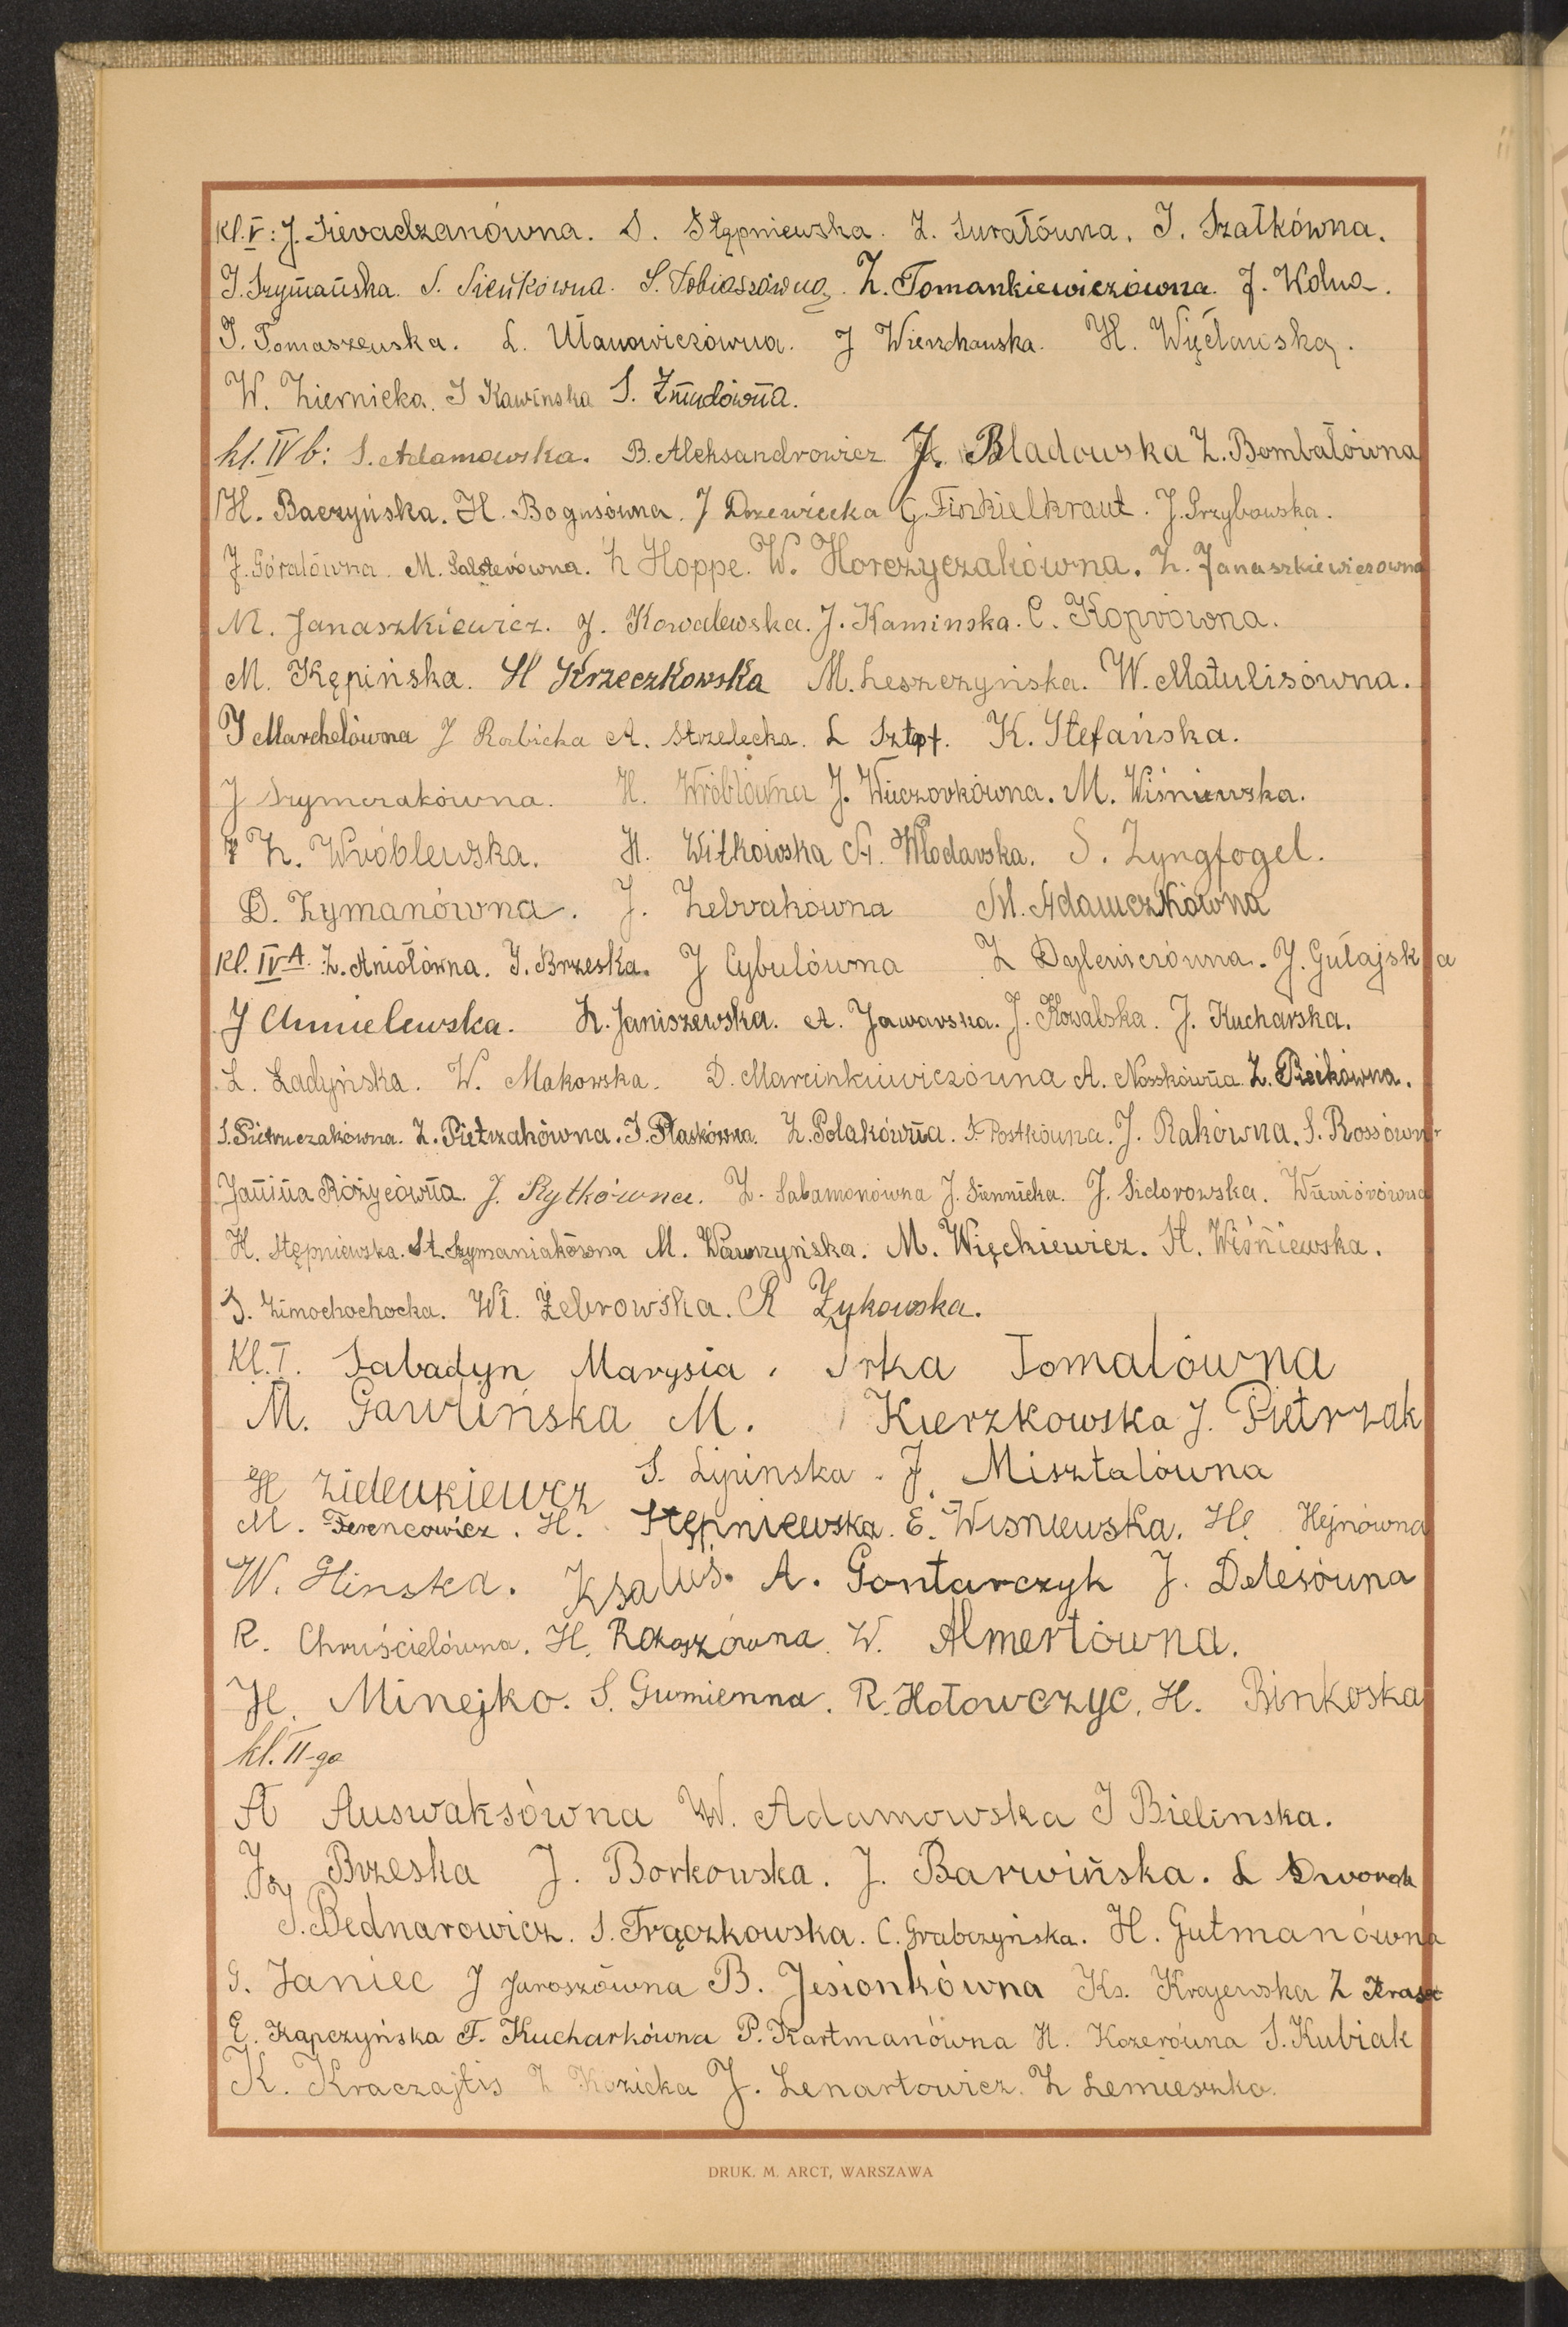 Kl. V: J. Sieradzanówna. D. Stępniewska. Z. Surałówna. I. Szatkówna.
I. Szymańska. S. Sieńkówna. S. Tobiaszówna. Z. Tomankiewiczówna. J. Wolna.
I. Tomaszewska. L. Ułanowiczówna. J Wierzchowska. H. Więcławska.
W. Ziernicka. I Kawinska S. Żmudówna.
kl. IV b: S. Adamowska. B. Aleksandrowicz J. Bladowska Z. Bombałówna
H. Baczyńska. H. Bogusówna. J Drzewiecka G. Finkielkraut. J. Grzybowska.
J. Góralówna. M. Galsterówna. Z Hoppe. W. Horczyczakówna. Z. Janaszkiewiczówna
M. Janaszkiewicz. J. Kowalewska. J. Kaminska. C. Koprówna.
M. Kępińska. H Krzeczkowska M. Leszczyńska. W. Matulisówna.
J Marchelówna J Rabicka A. Strzelecka. L K. Stefańska.
J Szymczakówna. H. Wróblówna J. Wieczorkówna. M. Wiśniewska.
Z. Wróblewska. H. Witkowska A. Włodarska. S. Zyngfogel.
D. Zymanówna. J. Żebrakówna M. Adamczkówna
Kl. IV A. Z. Aniołówna. J. Brzeska. J Cybulówna Z Dylewiczówna. J. Gułajska
J Chmielewska. Z. Janiszewska. A. Jaworska. J. Kowalska. J. Kucharska.
L. Ładyńska. W. Makowska. D. Marcinkiewiczówna A. Nosskówna Z. Piećkówna.
S. Pietruczakówna. Z. Pietrzakówna. J. Płaskówna. Z. Polakówna. F. Postkówna. J. Rakówna. S. Rossówna
Janina Różycówna. J. Rytkówna. Z. Salamonówna J. Siennicka. J. Sidorowska. Wiewiórówna
H. Stępniewska. St. Szymaniakówna M. Wawrzyńska. M. Więckiewicz. H. Wiśniewska.
S. Zimochochocka. Wł. Żebrowska. R Żykowska.
Kl. I. Sabadyn Marysia. Irka Tomalówna
M. Gawlińska M. Kierzkowska J. Pietrzak
H Zidenkiewcz S. Lipinska. J. Misztalówna
M. Ferencowicz. H. Stępniewska. E. Wisniewska. H. Hejnówna
W. Glinska. Ksaluś. A. Gontarczyk J. Delesówna
R. Chruścielówna. H. Rokoszówna. W. Almertówna.
H. Minejko. S. Gumienna. R. Hołowczyc. H. Binkoska
kl. II-ga
A Auswaksówna W. Adamowska I Bielinska.
J. Brzeska J. Borkowska. J. Barwińska. L Dworak
J. Bednarowicz. S. Frączkowska. C. Grabczyńska. H. Gutmanówna
G. Janiec J Jaroszówna B. Jesionkówna Ks. Krajewska Z
E. Kapczyńska F. Kucharkówna P. Kartmanówna H. Kozerówna S. Kubiak
K. Kraczajtis Z Kozicka J. Lenartowicz. Z Lemieszko.
DRUK. M. ARCT, WARSZAWA